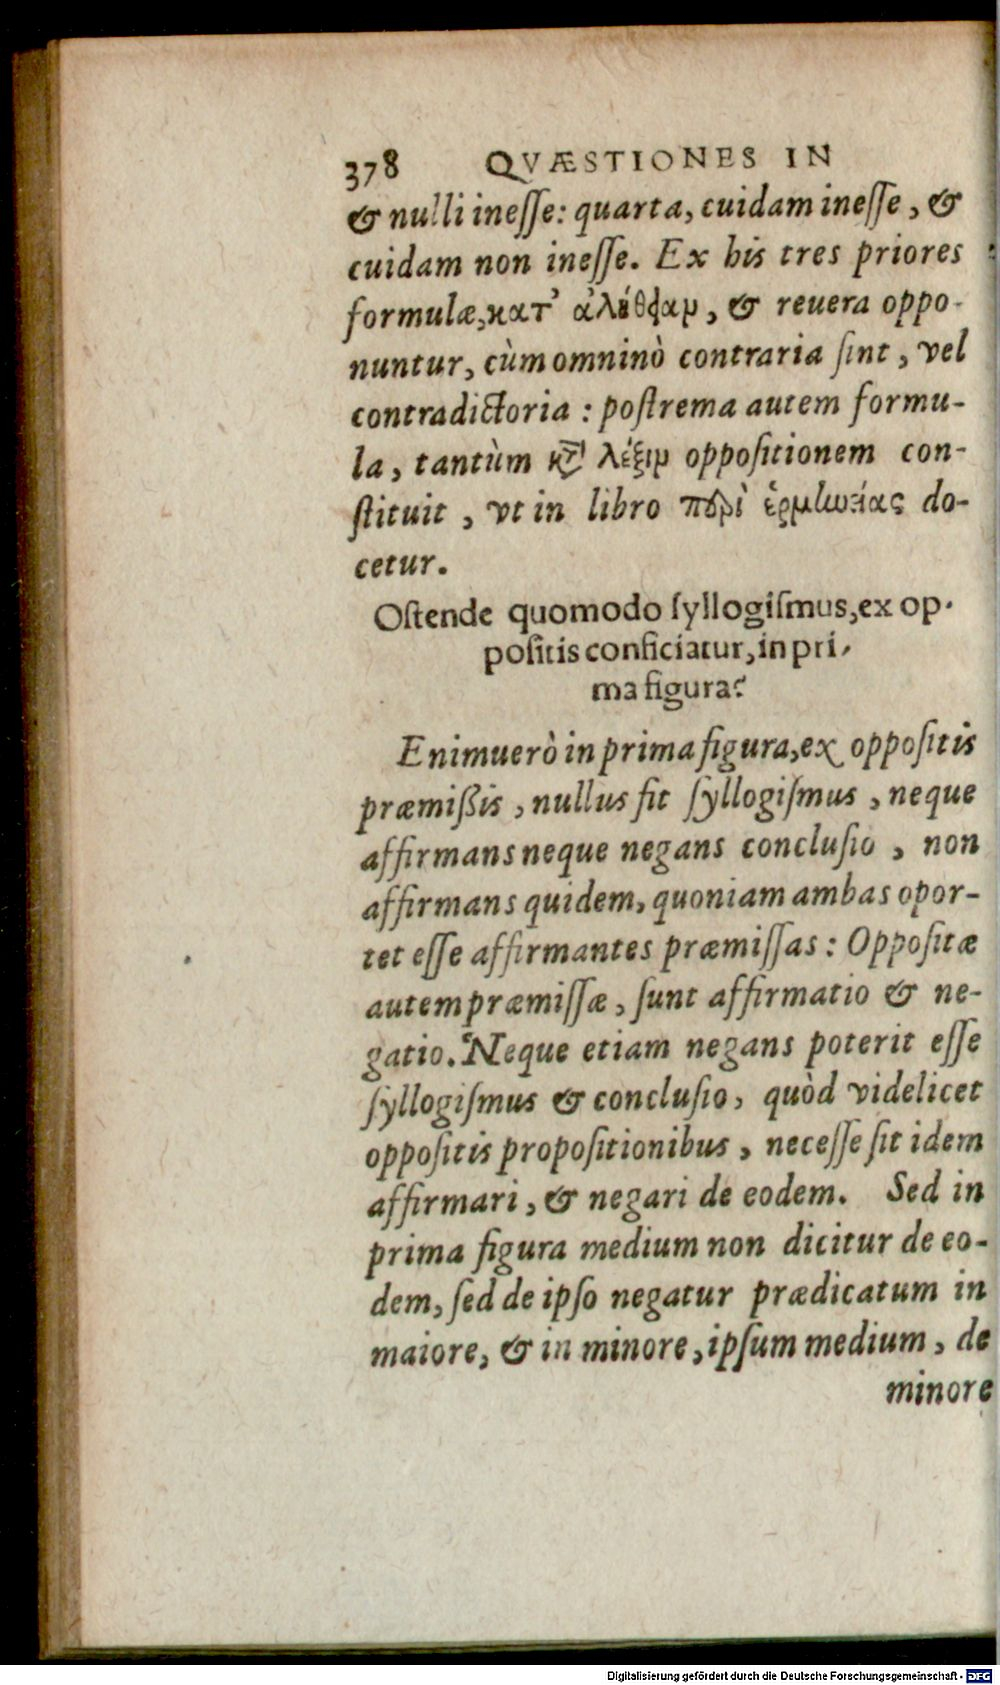 378 QVÆSTIONES IN
& nulli inesse: quarta, cuidam inesse, &
cuidam non inesse. Ex his tres priores
formulæ, κατ' ἀλήθειαν, & reuera oppo-
nuntur, cùm omninò contraria sint, vel
contradictoria: postrema autem formu-
la, tantùm κτ̀ λέξιν oppositionem con-
stituit, vt in libro περὶ ἑρμηνείας do-
cetur.
Ostende quomodo syllogismus, ex op-
positis conficiatur, in pri-
ma figura?
Enimuerò in prima figura, ex oppositis
præmißis, nullus fit syllogismus, neque
affirmans neque negans conclusio, non
affirmans quidem, quoniam ambas opor-
tet esse affirmantes præmissas: Oppositæ
autem præmissæ, sunt affirmatio & ne-
gatio. Neque etiam negans poterit esse
syllogismus & conclusio, quòd videlicet
oppositis propositionibus, necesse sit idem
affirmari, & negari de eodem. Sed in
prima figura medium non dicitur de eo-
dem, sed de ipso negatur prædicatum in
maiore, & in minore, ipsum medium, de
minore
Digitalisierung gefördert durch die Deutsche Forschungsgemeinschaft - DFG